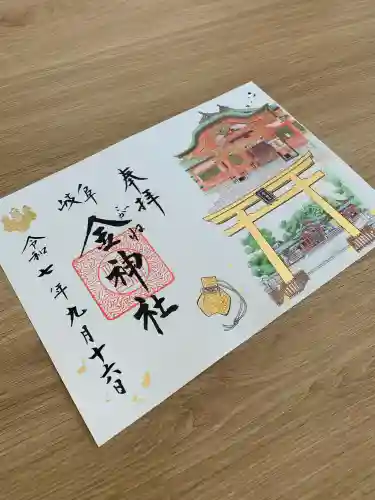 奉拝
岐阜
金神社
がね
令和七年九月十六日